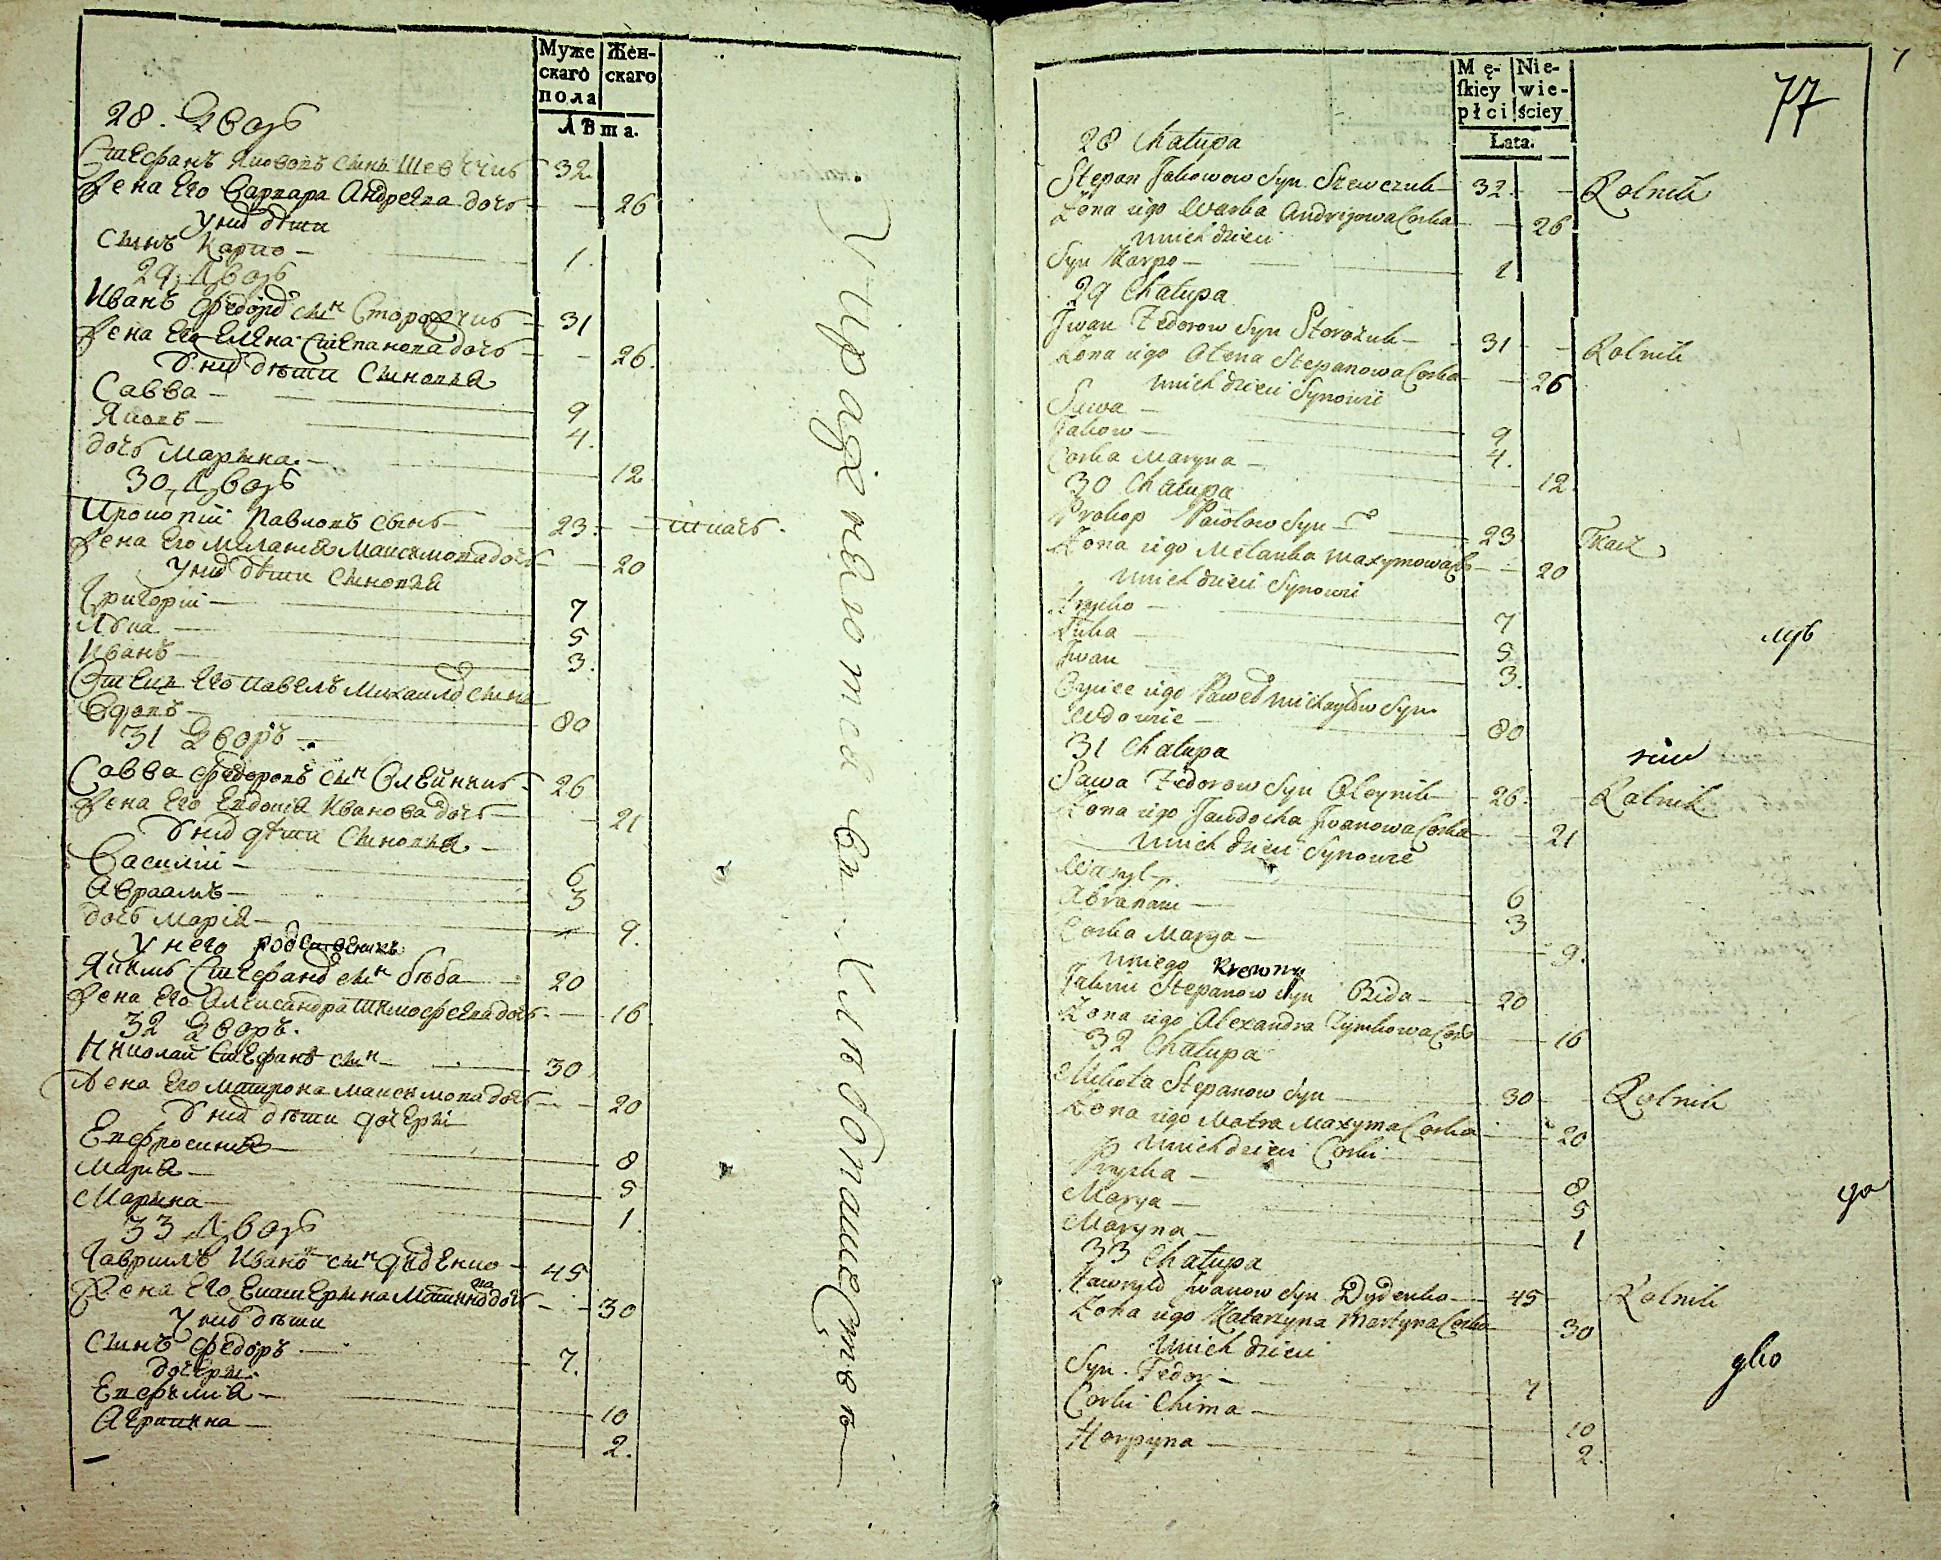 Муже
скаго
пола
Жен-
скаго
Лѣта.
28. Дворъ
Стефанъ Якововъ сынъ Шевчукъ 32
Жена его Варвара Андреева дочь 26
У них дѣти
Сынъ Карпо 1
29 Дворъ
Иванъ Федоров сынъ Сторожукъ 31
Жена его Елена Степанова дочь 26.
У них дѣти Сыновья
Савва 9
Яковъ 4.
дочь Марына. 12
30 Дворъ
Прокопій Павловъ сынъ 23 ткачъ.
Жена Его Меланія Максимова дочь 20
У них дѣти сыновья
Григорій 7
Лука 5
Иванъ 3.
Отецъ Его Павелъ Михаилов сынъ
Вдовъ 80
31 Дворъ
Савва Федоровъ сын Олейникъ 26
Жена Его Евдокія Иванова дочь 21
У них дѣти Сыновья
Василій 6
Авраамъ 3
дочь Марія 9.
У него родственикъ
Якимъ Стефанов сын Бѣда 20
Жена Его Александра Тимофеева дочь 16
32 Дворъ.
Николай Стефанов сын 30
Жена Его Матрона Максимова дочь 20
У них дѣти дочери
Евфросинія 8
Марія 5
Марына 1.
33 Дворъ
Гаврилъ Иванов сын Диденко 45
Жена Его Екатерина Мартинова дочь 30
У них дѣти
Сынъ Федоръ 7.
дочери.
Евфимія 10
Агрипина 2.
77
Mę-
ſkiey
płci
Nie-
wie-
ściey
Lata.
28 Chałupa
Stepan Jakowow Syn Szewczuk 32 Rolnik
Żona iego Warba Andrijowa Corka 26
U nich dzieci
Syn Karpo 1
29 Chałupa
Jwan Fedorow Syn Storożuk 31 Rolnik
Żona iego Olena Stepanowa Corka 26
U nich dzieci Synowie
Sawa 9
Jakow 4.
Corka Maryna 12
30 Chałupa
Prokop Pawłow Syn 23 Tkacz
Żona iego Melanka Maxymowa Co 20
U nich dzieci Synowie
Hryćko 7
Łuka 5
Jwan 3.
Oyciec iego Paweł Michayłow Syn
Wdowiec 80
31 Chałupa
Sawa Fedorow Syn Oleynik 26. Rolnik
Żona iego Jawdocha Jwanowa Corka 21
U nich dzieci Synowie
Wasyl 6
Abraham 3
Corka Marya 9.
U niego Krewny
Jakim Stepanow Syn Bida 20
Żona iego Alexandra Tymkowa Cor 16
32 Chałupa
Mikoła Stepanow Syn 30 Rolnik
Żona iego Motra Maxyma Corka 20
U nich dzieci Corki
Pryska 8
Marya 5
Maryna 1
33 Chałupa
Hawryło Jwanow Syn Dydenko 45 Rolnik
Żona iego Katarzyna Martyna Corka 30
U nich dzieci
Syn Fedor 7
Corki Chima 10
Horpyna 2.